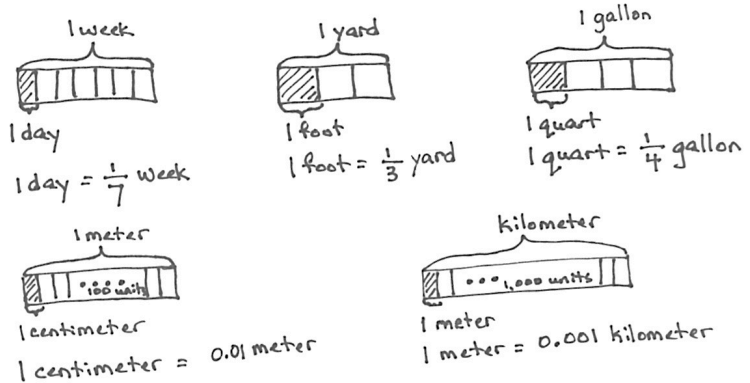 1 week
1 day
1 day = 1/7 week
1 yard
1 foot
1 foot = 1/3 yard
1 gallon
1 quart
1 quart = 1/4 gallon
1 meter
100 units
1 centimeter
1 centimeter = 0.01 meter
kilometer
1,000 units
1 meter
1 meter = 0.001 kilometer